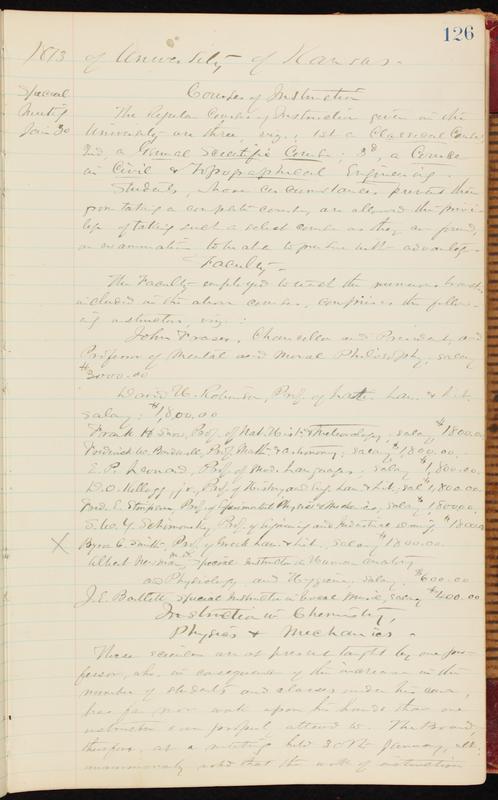 126
1873 of University of Kansas.
Special
Meeting
Jan. 30
Courses of Instruction
The Regular Courses of Instruction given in the
University are three, viz., 1st a Classical Course,
2nd, a General Scientific Course; 3d, a Course
in Civil & Topographical Engineering.
Students, whose circumstances prevent them
from taking a complete course, are allowed the privi-
lege of taking such a select course as they are found,
on examination to be able to pursue with advantage.
Faculty.
The Faculty employed to teach the numerous branches
included in the above courses, comprises the follow-
ing instructors, viz:
John Fraser, Chancellor and President, and
Professor of Mental and Moral Philosophy, salary
$3000.00
David H. Robinson, Prof. of Latin Lan. & Lit.
salary, $1,800.00
Frank H. Snow, Prof. of Nat. Hist. & Meteorology, salary $1800.00
Frederick W. Bardwell, Prof. Math. & Astronomy, salary $1,800.00.
E. P. Leonard, Prof. of Mod. Languages, salary $1,800.00
D. O. Kellogg, jr., Prof. of History and Eng. Lan. & Lit., sal $1,800.00
Fred. E. Stimpson, Prof. of Chemistry Physics & Mechanics, salary $1800.00
S. W. Y. Schimonsky, Prof. of Engineering and Drawing $1800.00
X Byron C. Smith, Prof. of Greek Lan. & Lit., salary $1800.00
Albert Newman, M.D. Special Instructor in Human Anatomy
and Physiology and Hygiene, salary, $600.00
J. E. Bartlett, special Instructor in Vocal Music, salary $400.00
Instruction in Chemistry,
Physics & Mechanics.
These sciences are at present taught by one pro-
fessor, who, in consequence of the increase in the
number of students and classes under his care,
has far more work upon his hands than one
instructor can properly attend to. The Board,
therefore, at a meeting held 30th January, ult.
unanimously voted that the work of instruction